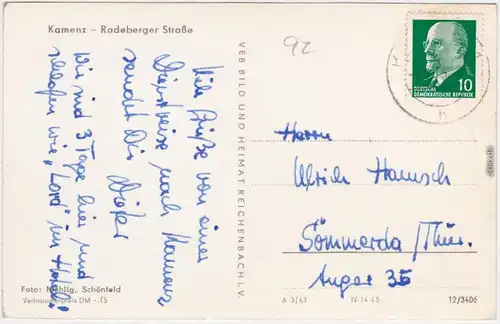 Kamenz – Radeberger Straße
92
Viele Grüße von einer
Dienstreise nach Kamenz
sendet Dir
Dieter
Wir sind 3 Tage hier und
schlafen wie „Lord" im Hotel!
VEB BILD UND HEIMAT REICHENBACH I. V.
DEUTSCHE
DEMOKRATISCHE REPUBLIK
10
Herrn
Ulrich Hamsch
Sömmerda/Thür.
Anger 35
Foto: Mühlig, Schönfeld
Verbraucherpreis DM -.15
A 3/63
IV-14-45
12/3406